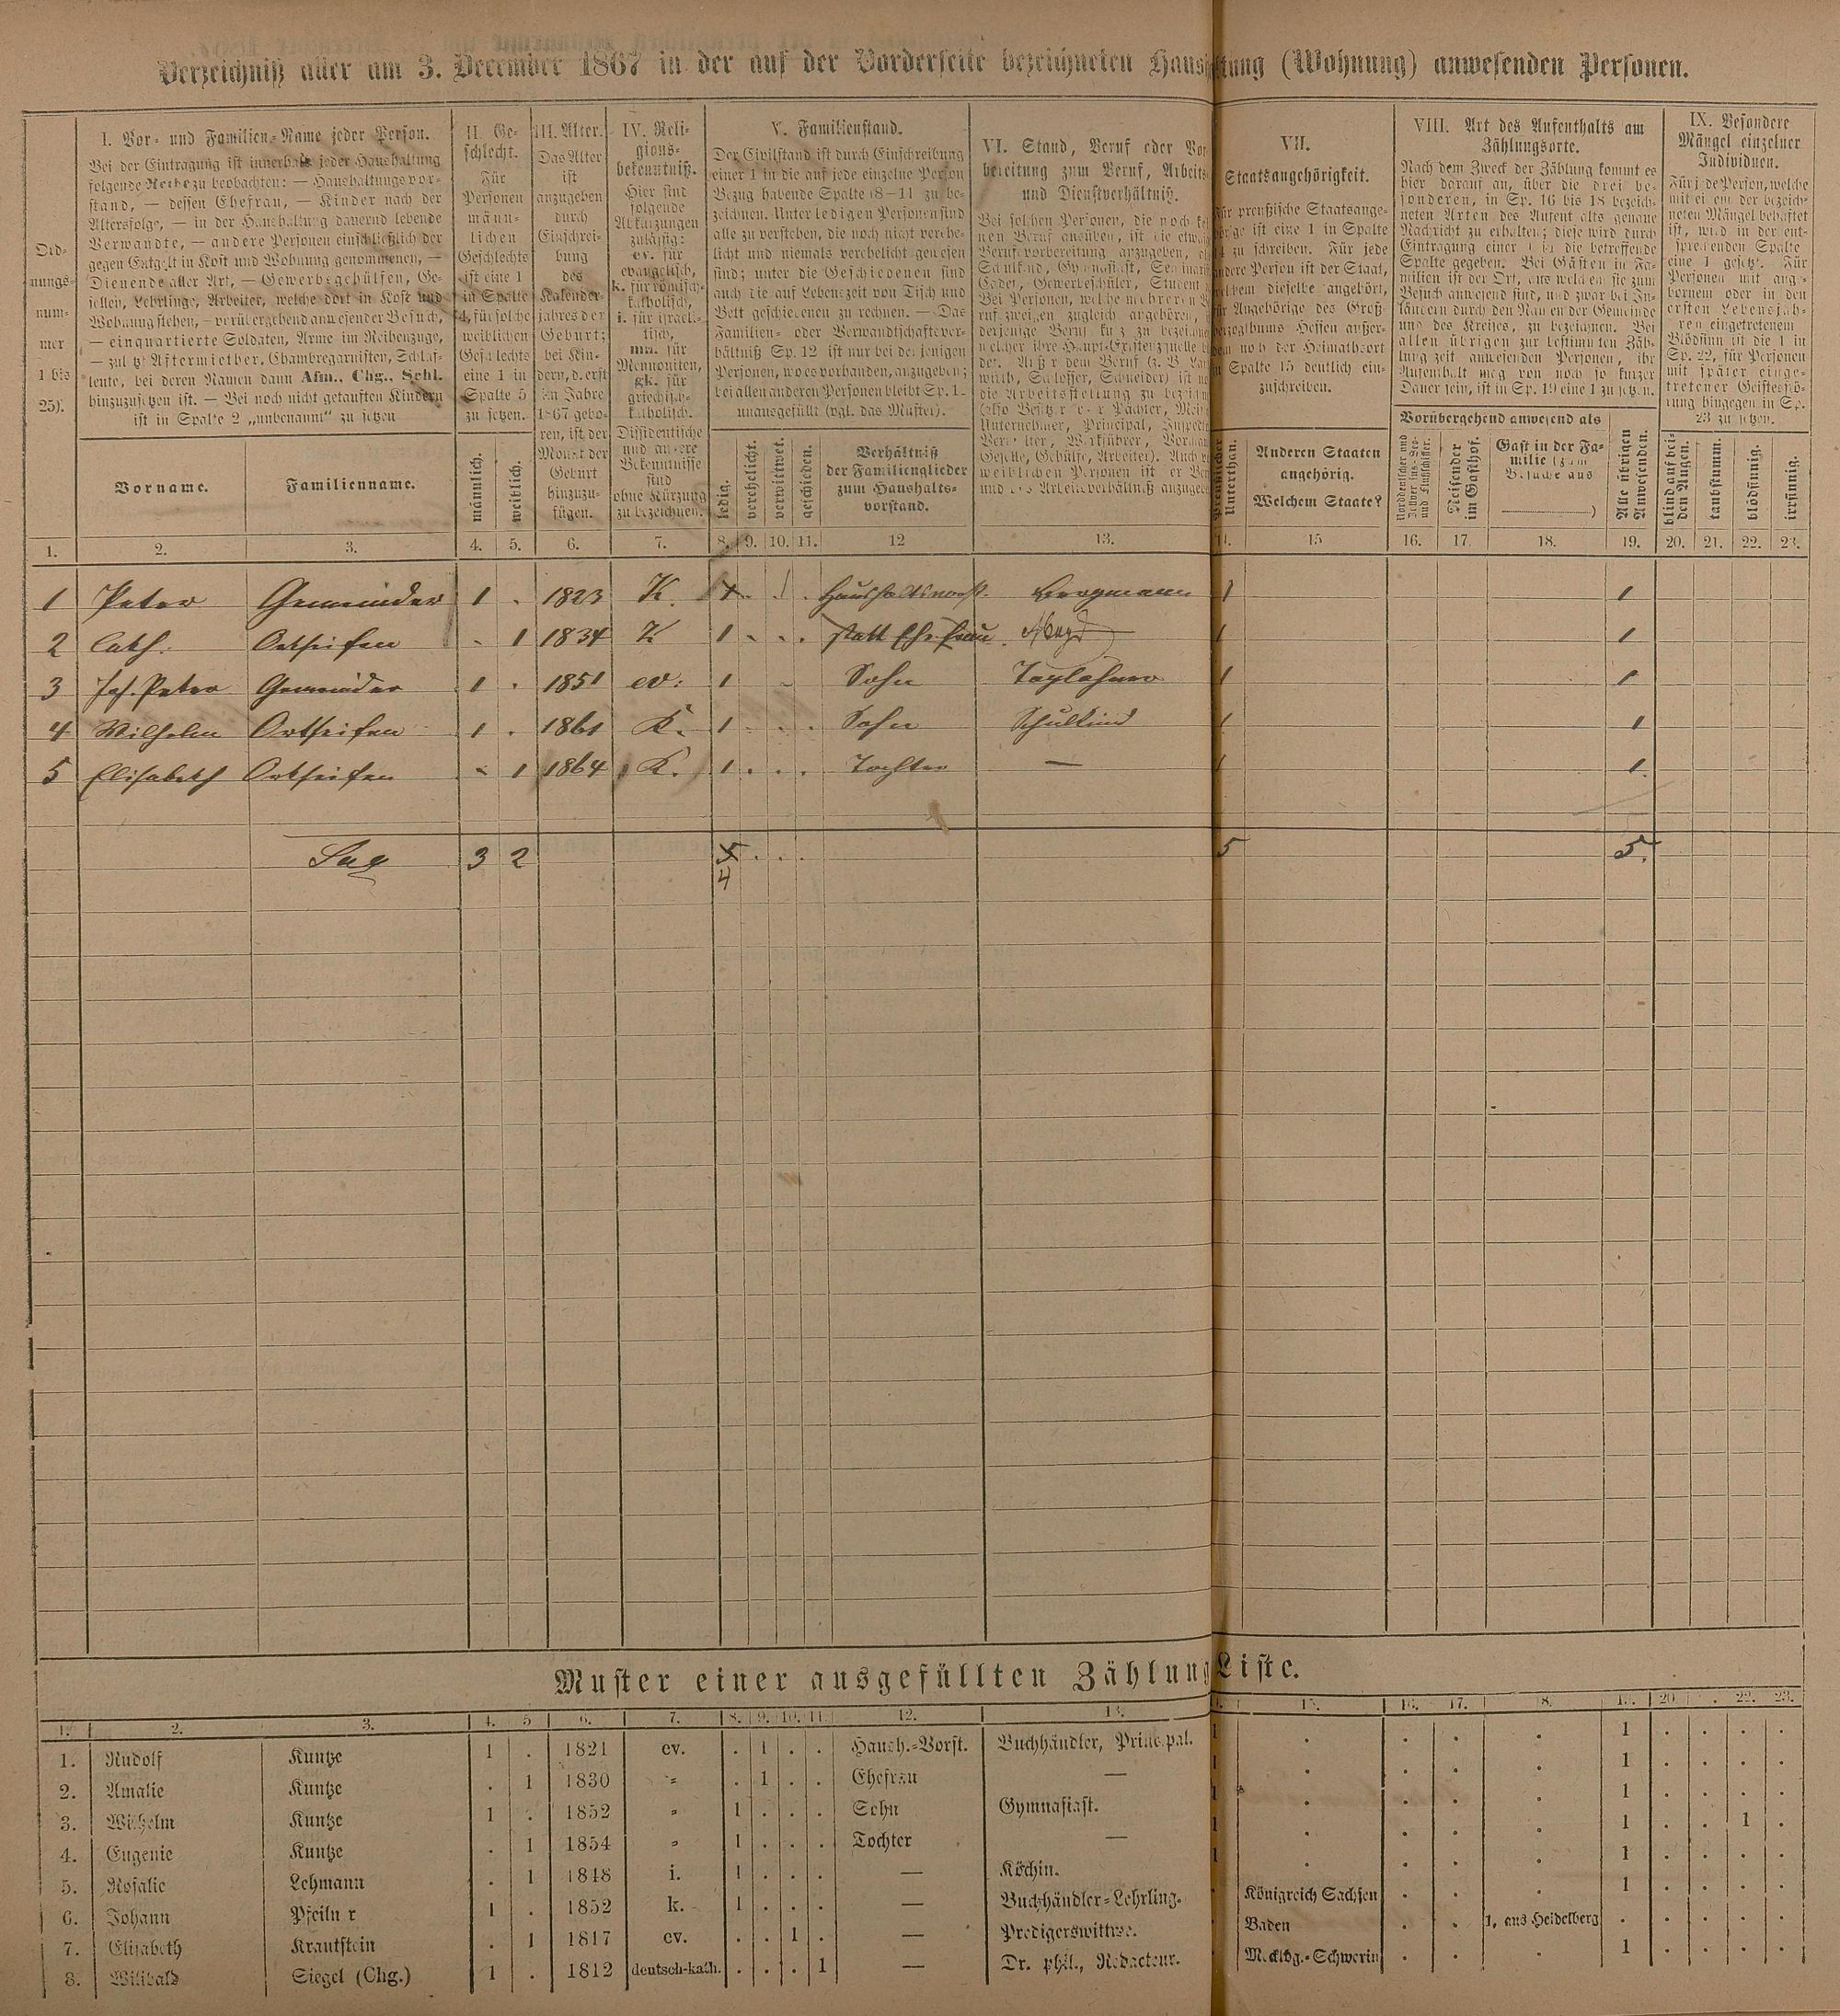 Verzeichniß aller am 3. December 1867 in der auf der Vorderseite bezeichneten Haushaltung (Wohnung) anwesenden Personen.
Ord-
nungs-
num-
mer
1 bis
25).
I. Vor- und Familien-Name jeder Person.
Bei der Eintragung ist innerhalb jeder Haushaltung
folgende Reihe zu beobachten: — Haushaltungsvor-
stand, — dessen Ehefrau, — Kinder nach der
Altersfolge, — in der Haushaltung dauernd lebende
Verwandte, — andere Personen einschließlich der
gegen Entgelt in Kost und Wohnung genommenen, —
Dienende aller Art, — Gewerbsgehülfen, Ge-
sellen, Lehrlinge, Arbeiter, welche dort in Kost und
Wohnung stehen, — vorübergehend anwesender Besuch,
— einquartierte Soldaten, Arme im Reihenzuge,
— zuletzt Aftermiether, Chambregarnisten, Schlaf-
leute, bei deren Namen dann Afm., Chg., Schl.
hinzuzusetzen ist. — Bei noch nicht getauften Kindern
ist in Spalte 2 „unbenannt" zu setzen
Vorname. Familienname.
II. Ge-
schlecht.
Für
Personen
männ-
lichen
Geschlechts
ist eine 1
in Spalte
4, für solche
weiblichen
Geschlechts
eine 1 in
Spalte 5
zu setzen.
männlich. weiblich.
III. Alter.
Das Alter
ist
anzugeben
durch
Einschrei-
bung
des
Kalender-
jahres der
Geburt;
bei Kin-
dern, d. erst
im Jahre
1867 gebo-
ren, ist der
Monat der
Geburt
hinzuzu-
fügen.
IV. Reli-
gions-
bekenntniß.
Hier sind
folgende
Abkürzungen
zulässig:
ev. für
evangelisch,
k. für römisch-
katholisch,
i. für israeli-
tisch,
mn. für
Mennoniten,
gk. für
griechisch-
katholisch.
Dissidentische
und andere
Bekenntnisse
sind
ohne Kürzung
zu bezeichnen.
V. Familienstand.
Der Civilstand ist durch Einschreibung
einer 1 in die auf jede einzelne Person
Bezug habende Spalte (8—11) zu be-
zeichnen. Unter ledigen Personen sind
alle zu verstehen, die noch nicht verehe-
licht und niemals verehelicht gewesen
sind; unter die Geschiedenen sind
auch die auf Lebenszeit von Tisch und
Bett geschiedenen zu rechnen. — Das
Familien- oder Verwandtschaftsver-
hältniß Sp. 12 ist nur bei denjenigen
Personen, wo es vorhanden, anzugeben;
bei allen anderen Personen bleibt Sp. 1
unausgefüllt (vgl. das Muster).
ledig. verehelicht. verwittwet. geschieden.
Verhältniß
der Familienglieder
zum Haushalts-
vorstand.
VI. Stand, Beruf oder Vor
bereitung zum Beruf, Arbeits
und Dienstverhältniß.
VII.
Staatsangehörigkeit.
Für preußische Staatsange-
ist eine 1 in Spalte
zu schreiben. Für jede
andere Person ist der Staat,
welchem dieselbe angehört,
für Angehörige des Groß-
herzogthums Hessen außer-
dem noch der Heimathsort
in Spalte 15 deutlich ein-
zuschreiben.
Unterthan.
Anderen Staaten
angehörig.
Welchem Staate?
VIII. Art des Aufenthalts am
Zählungsorte.
Nach dem Zweck der Zählung kommt es
hier darauf an, über die drei be-
sonderen, in Sp. 16 bis 18 bezeich-
neten Arten des Aufenthalts genaue
Nachricht zu erhalten; diese wird durch
Eintragung einer 1 in die betreffende
Spalte gegeben. Bei Gästen in Fa-
milien ist der Ort, aus welchem sie zum
Besuch anwesend sind, und zwar bei In-
ländern durch den Namen der Gemeinde
und des Kreises, zu bezeichnen. Bei
allen übrigen zur bestimmten Zäh-
lungszeit anwesenden Personen, ihr
Aufenthalt mag von noch so kurzer
Dauer sein, ist in Sp. 19 eine 1 zu setzen.
Vorübergehend anwesend als
Reisender
im Gasthof.
Gast in der Fa-
milie (zum
Besuche aus
)
Alle übrigen
Anwesenden.
IX. Besondere
Mängel einzelner
Individuen.
Für jede Person, welche
mit einem der bezeich-
neten Mängel behaftet
ist, wird in der ent-
sprechenden Spalte
eine 1 gesetzt. Für
Personen mit ange-
bornem oder in den
ersten Lebensjah-
ren eingetretenem
Blödsinn ist die 1 in
Sp. 22, für Personen
mit später einge-
tretener Geistesstö-
rung hingegen in Sp.
23 zu setzen.
blind auf bei-
den Augen. taubstumm. blödsinnig. irrsinnig.
1. 2. 3. 4. 5. 6. 7. 8. 9. 10. 11. 12 13. 14. 15 16. 17. 18. 19. 20. 21. 22. 23.
1 Peter Gemeinder 1 . 1823 K. Haushaltsvorst. Bergmann 1 1
2 Cath. Ortseifen - 1 1834 K 1 . . . statt Ehefrau Magd 1 1
3 Joh. Peter Gemeinder 1 . 1851 ev: 1 - Sohn Taglöhner 1 1
4 Wilhelm Ortseifen 1 . 1861 K. 1 . . . Sohn Schulkind 1 1
5 Elisabeth Ortseifen - 1 1864 K. 1 . . . Tochter — 1 1.
3 2 5 . . . 5 5.
4
Muster einer ausgefüllten Zählungs Liste.
1. 2. 3. 4. 5 6. 7. 8. 9. 10. 11. 12. 13. 15. 16. 17. 8. 1. 20 . 22. 23.
1. Rudolf Kuntze 1 . 1821 ev. . 1 . . Haush.-Vorst. Buchhändler, Principal. 1 . . . . 1 . . . .
2. Amalie Kuntze . 1 1830 " . 1 . . Ehefrau — 1 . . . . 1 . . . .
3. Wilhelm Kuntze 1 . 1852 " 1 . . . Sohn Gymnasiast. 1 . . . . 1 . . . .
4. Eugenie Kuntze . 1 1854 " 1 . . . Tochter — 1 . . . . 1 . . 1 .
5. Rosalie Lehmann . 1 1848 i. 1 . . . — Köchin. 1 . . . . 1 . . . .
6. Johann Pfeilner 1 . 1852 k. 1 . . . — Buchhändler-Lehrling. . Königreich Sachsen . . . 1 . . . .
7. Elisabeth Krautstein . 1 1817 ev. . . 1 . — Predigerswittwe. . Baden . . 1, aus Heidelberg . . . . .
8. Wilibald Siegel (Chg.) 1 . 1812 deutsch-kath. . . . 1 — Dr. phil., Redacteur. . Mecklbg.-Schwerin . . . 1 . . . .